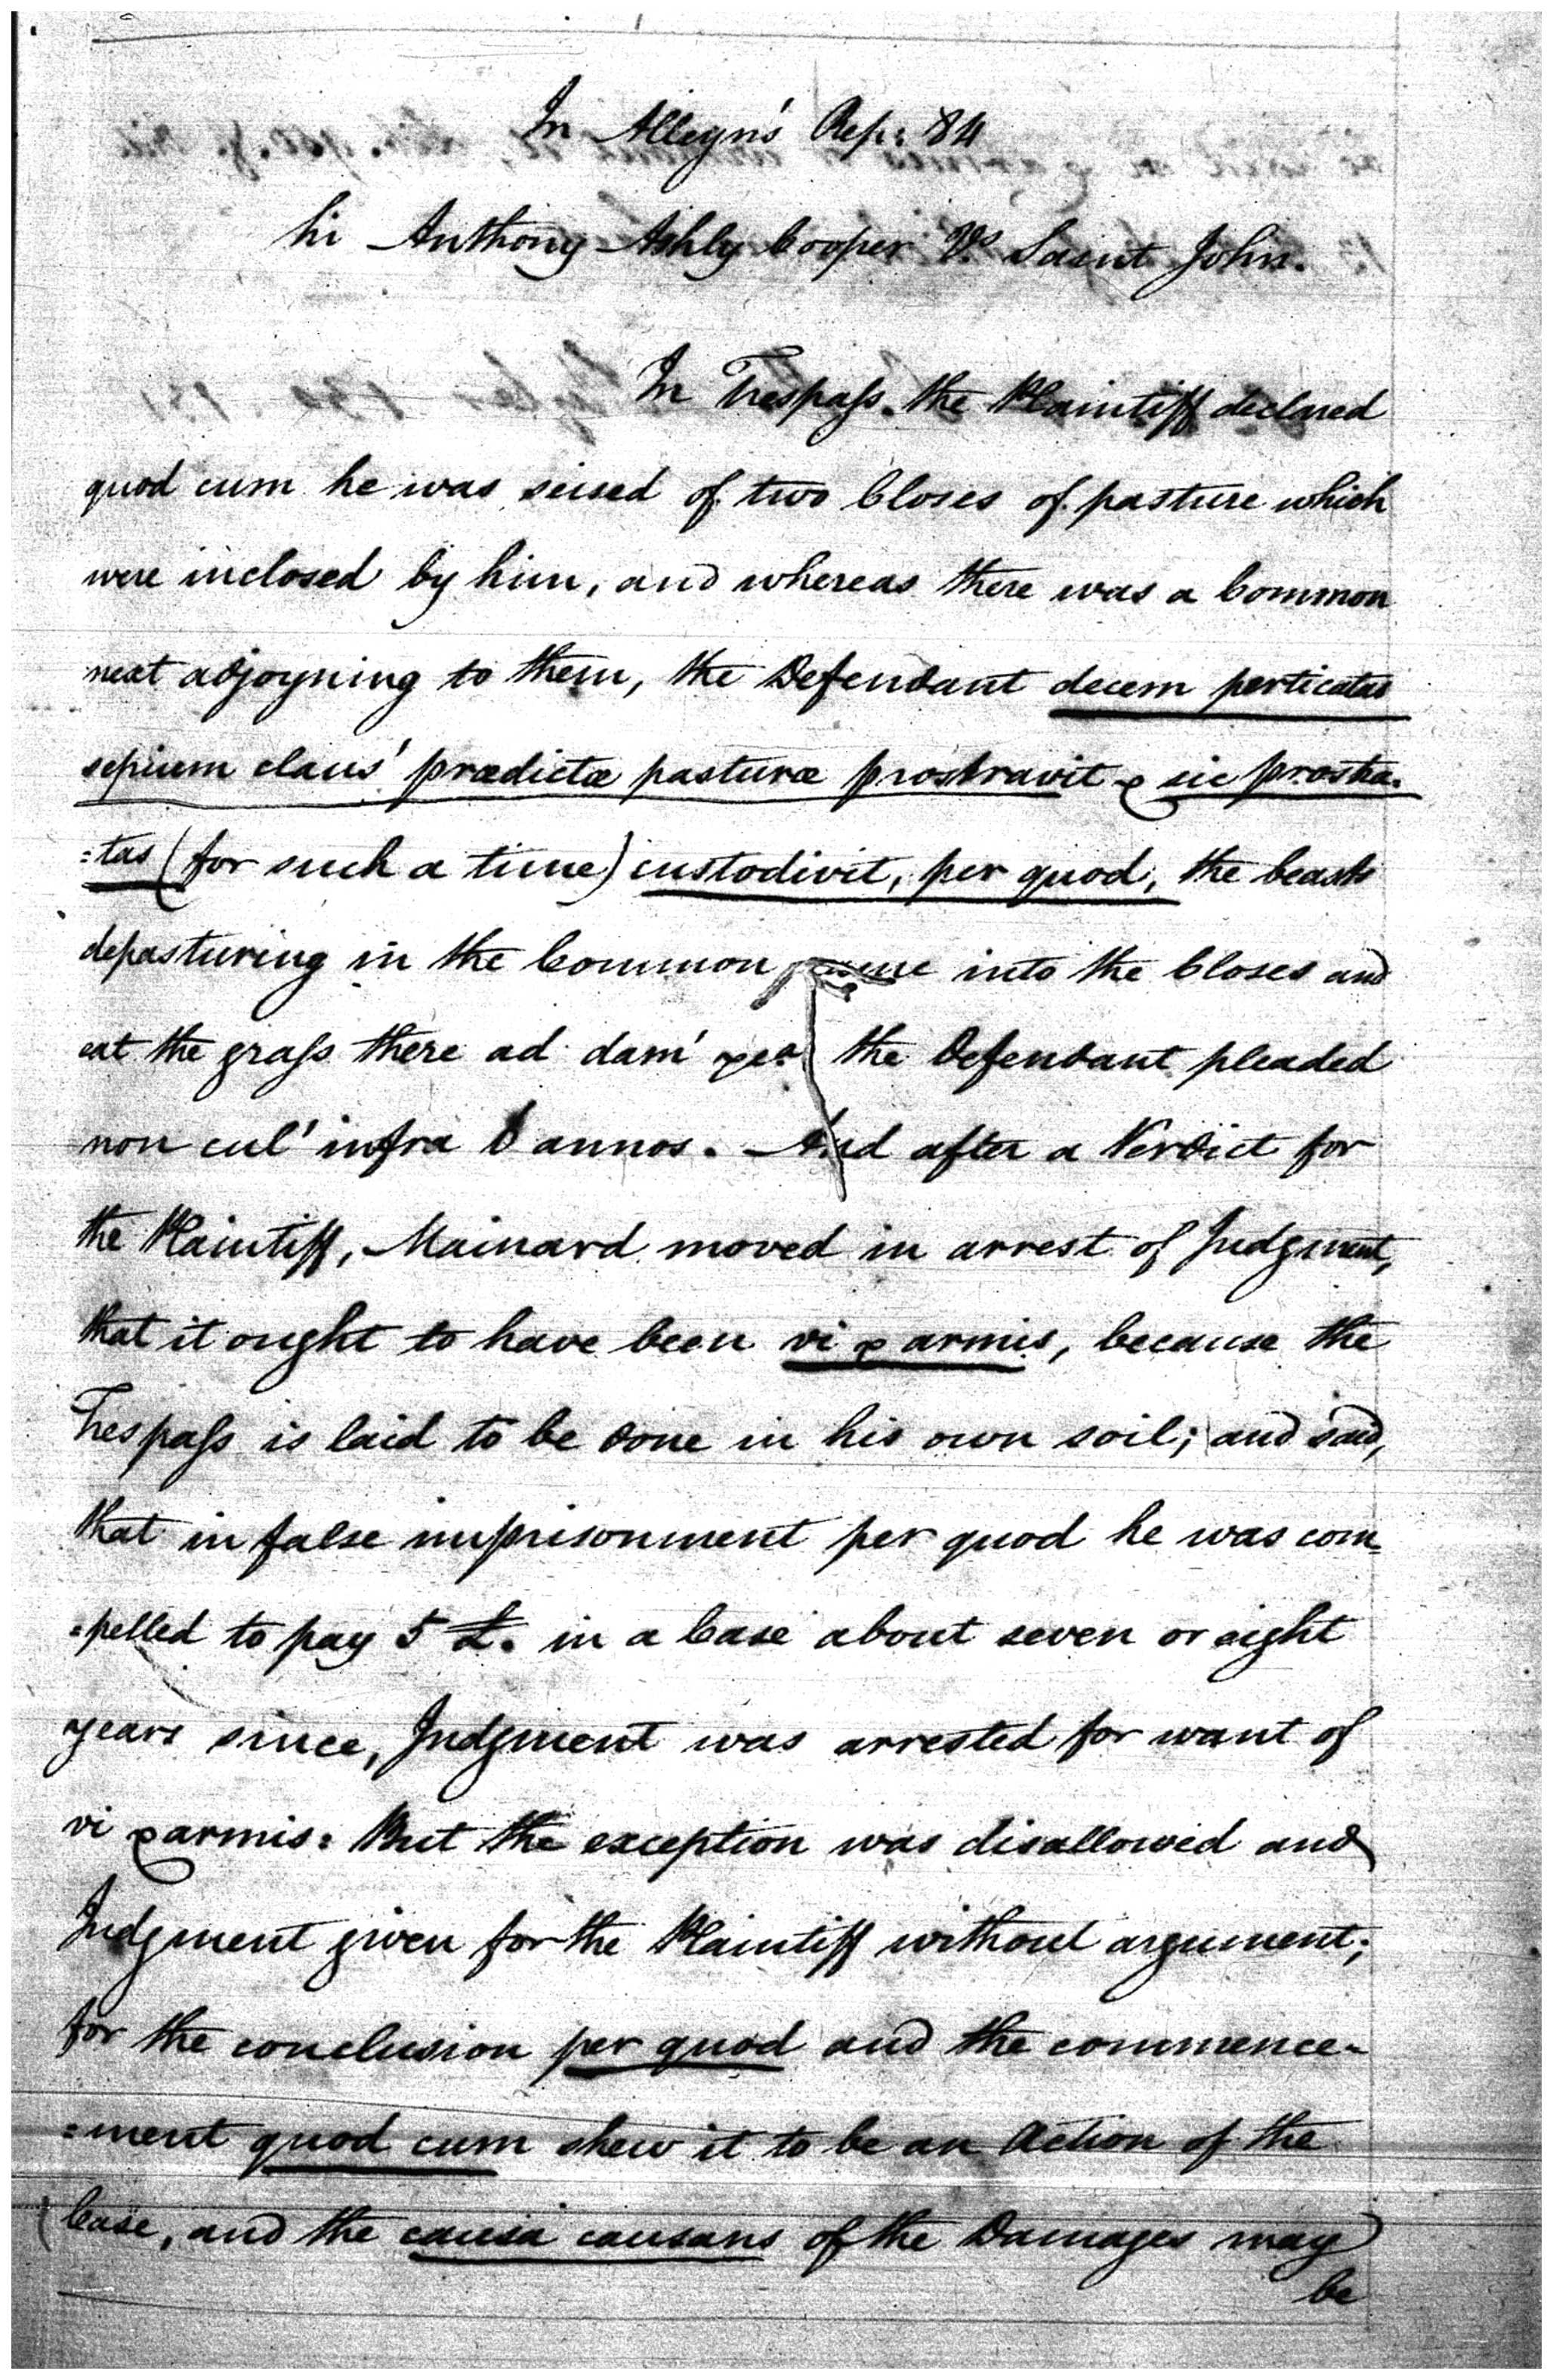 In Alleyn's Rep: 84
Sir Anthony Ashly Cooper Vs Saint John.
In Trespass. the Plaintiff declared
quod cum he was seised of two Closes of pasture which
were inclosed by him, and whereas there was a Common
next adjoyning to them, the Defendant decem perticatas
sepium claus' prædictæ pasturæ prostravit & sic prostra-
=tas (for such a time) custodivit, per quod, the beasts
depasturing in the Common came into the Closes and
eat the grass there ad dam' &ca the Defendant pleaded
non cul' infra 6 annos. And after a Verdict for
the Plaintiff, Mainard moved in arrest of Judgment,
that it ought to have been vi & armis, because the
Trespass is laid to be done in his own soil; and said,
that in false imprisonment per quod he was com=
=pelled to pay 5 £. in a Case about seven or eight
years since, Judgment was arrested for want of
vi & armis: But the exception was disallowed and
Judgment given for the Plaintiff without argument;
for the conclusion per quod and the commence-
=ment quod cum shew it to be an Action of the
Case, and the causa causans of the Damages may
be